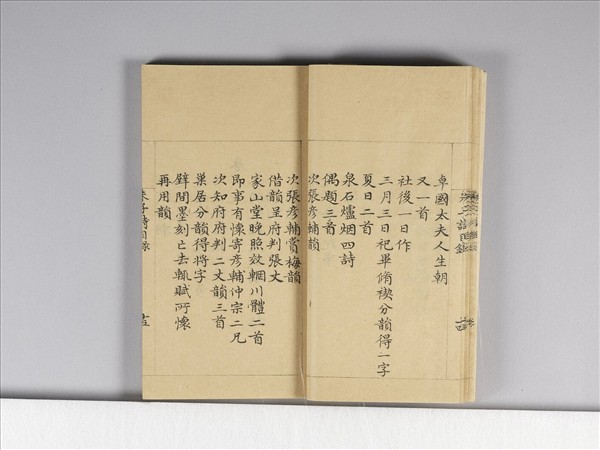 卓國太夫人生朝
又一首
社後一日作
三月三日祀畢脩禊分韻得一字
夏日二首
泉石爐烟四詩
偶題三首
次張彦輔韻
次張彦輔賞梅韻
偕韻呈府判張丈
家山堂晚照效輞川體二首
即事有懷寄彦輔仲宗二兄
次知府府判二丈韻三首
巢居分韻得將字
壁間墨刻亡去輒賦所懷
再用韻
朱子詩目錄
十五